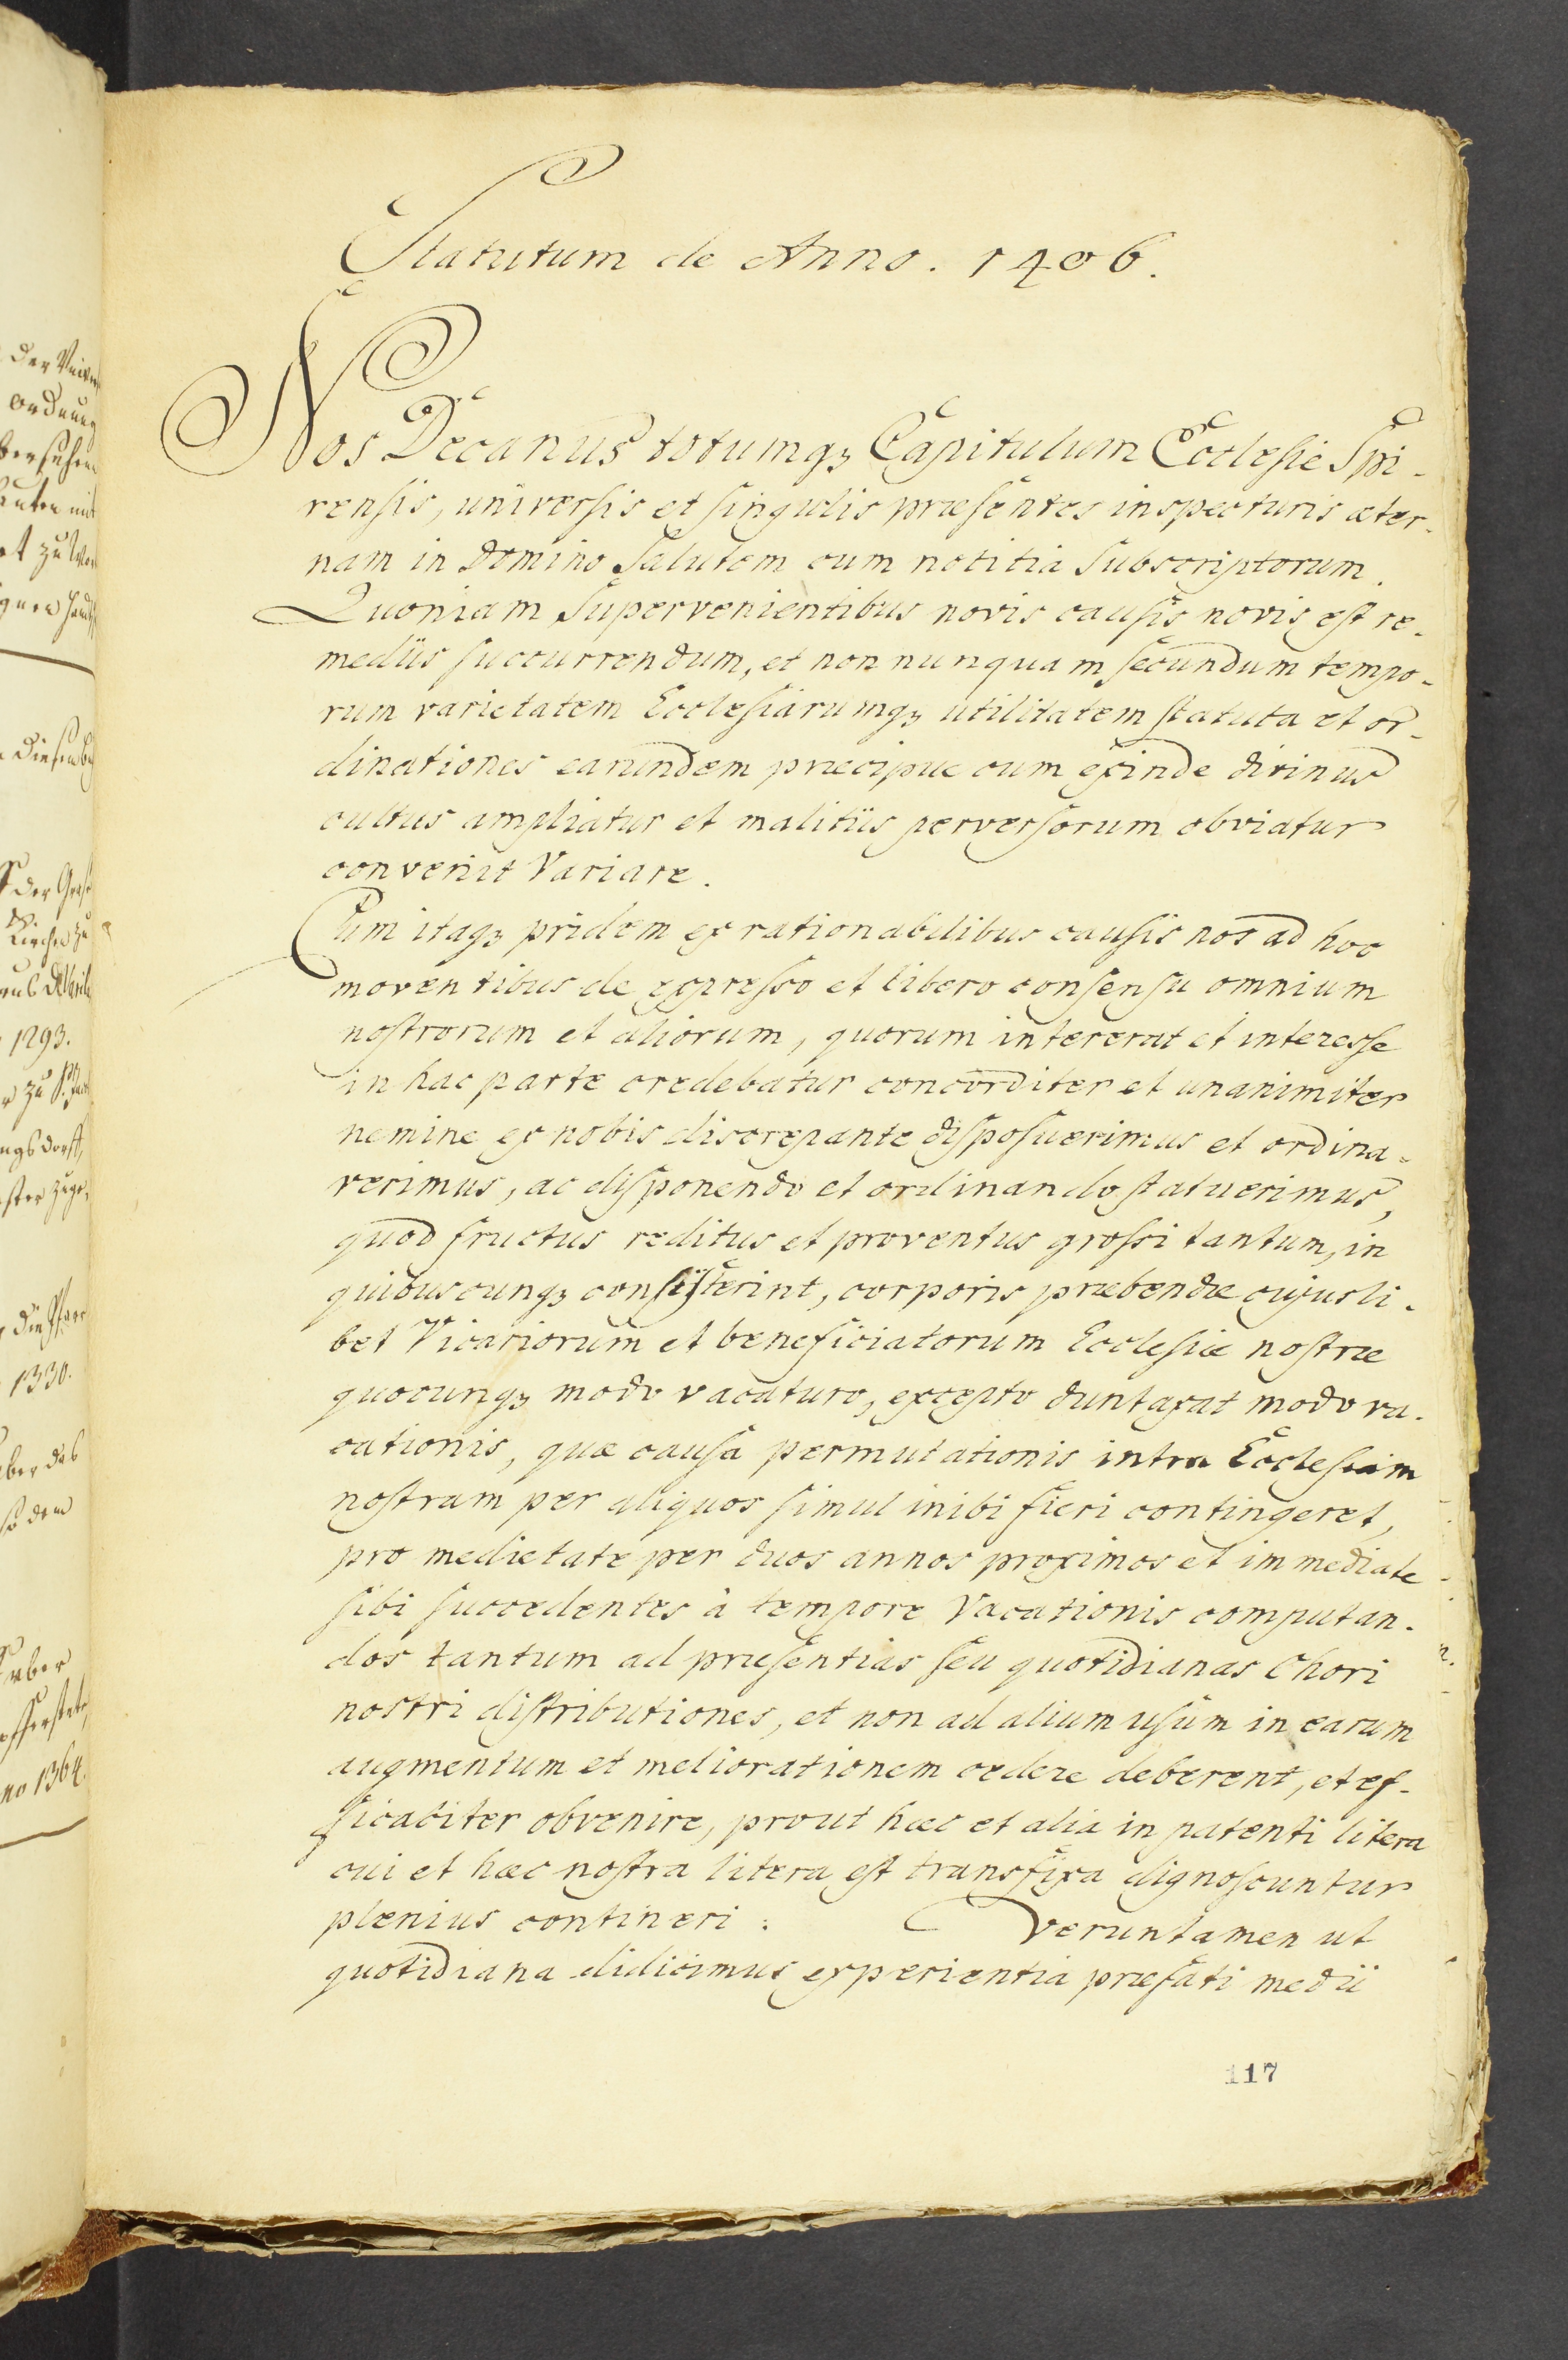 Statutum de Anno. 1406.
Nos Decanus totumqꝫ Capitulum Ecclesie Spi-
rensis, universis et singulis præsentes inspecturis æter-
nam in Domino Salutem cum notitia subscriptorum.
Quoniam supervenientibus novis causis novis est re-
mediis succurrendum, et non nunquam secundum tempo-
rum varietatem Ecclesiarumqꝫ utilitatem statuta et or-
dinationes earundem præcipue cum exinde divinus
cultus ampliatur et malitiis perversorum obviatur
convenit Variare.
Cum itaqꝫ pridem ex rationabilibus causis nos ad hoc
moventibus de expresso et libero consensu omnium
nostrorum et aliorum, quorum intererat et interesse
in hac parte credebatur concorditer et unanimiter
nemine ex nobis discrepante disposuerimus et ordina-
verimus, ac disponendo et ordinando statuerimus,
quod fructus reditus et proventus grossi tantum, in
quibuscunqꝫ consisterint, corporis præbendæ cujusli-
bet Vicariorum et beneficiatorum Ecclesiæ nostræ
quocunqꝫ modo vacaturo, excepto duntaxat modo va-
cationis, quæ causa permutationis intra Ecclesiam
nostram per aliquos simul inibi fieri contingeret,
pro medietate per duos annos proximos et immediate
sibi succedentes à tempore Vacationis computan-
dos tantum ad præsentias seu quotidianas Chori
nostri distributiones, et non ad alium usum in earum
augmentum et meliorationem cedere deberent, et ef-
ficaciter obvenire, prout hæc et alia in patenti litera
cui et hæc nostra litera est transfixa dignoscuntur
plenius contineri: Veruntamen ut
quotidiana didicimus experientia præfati medii
117
der
ordnung
1293.
1330.
über das
über
no 1364.